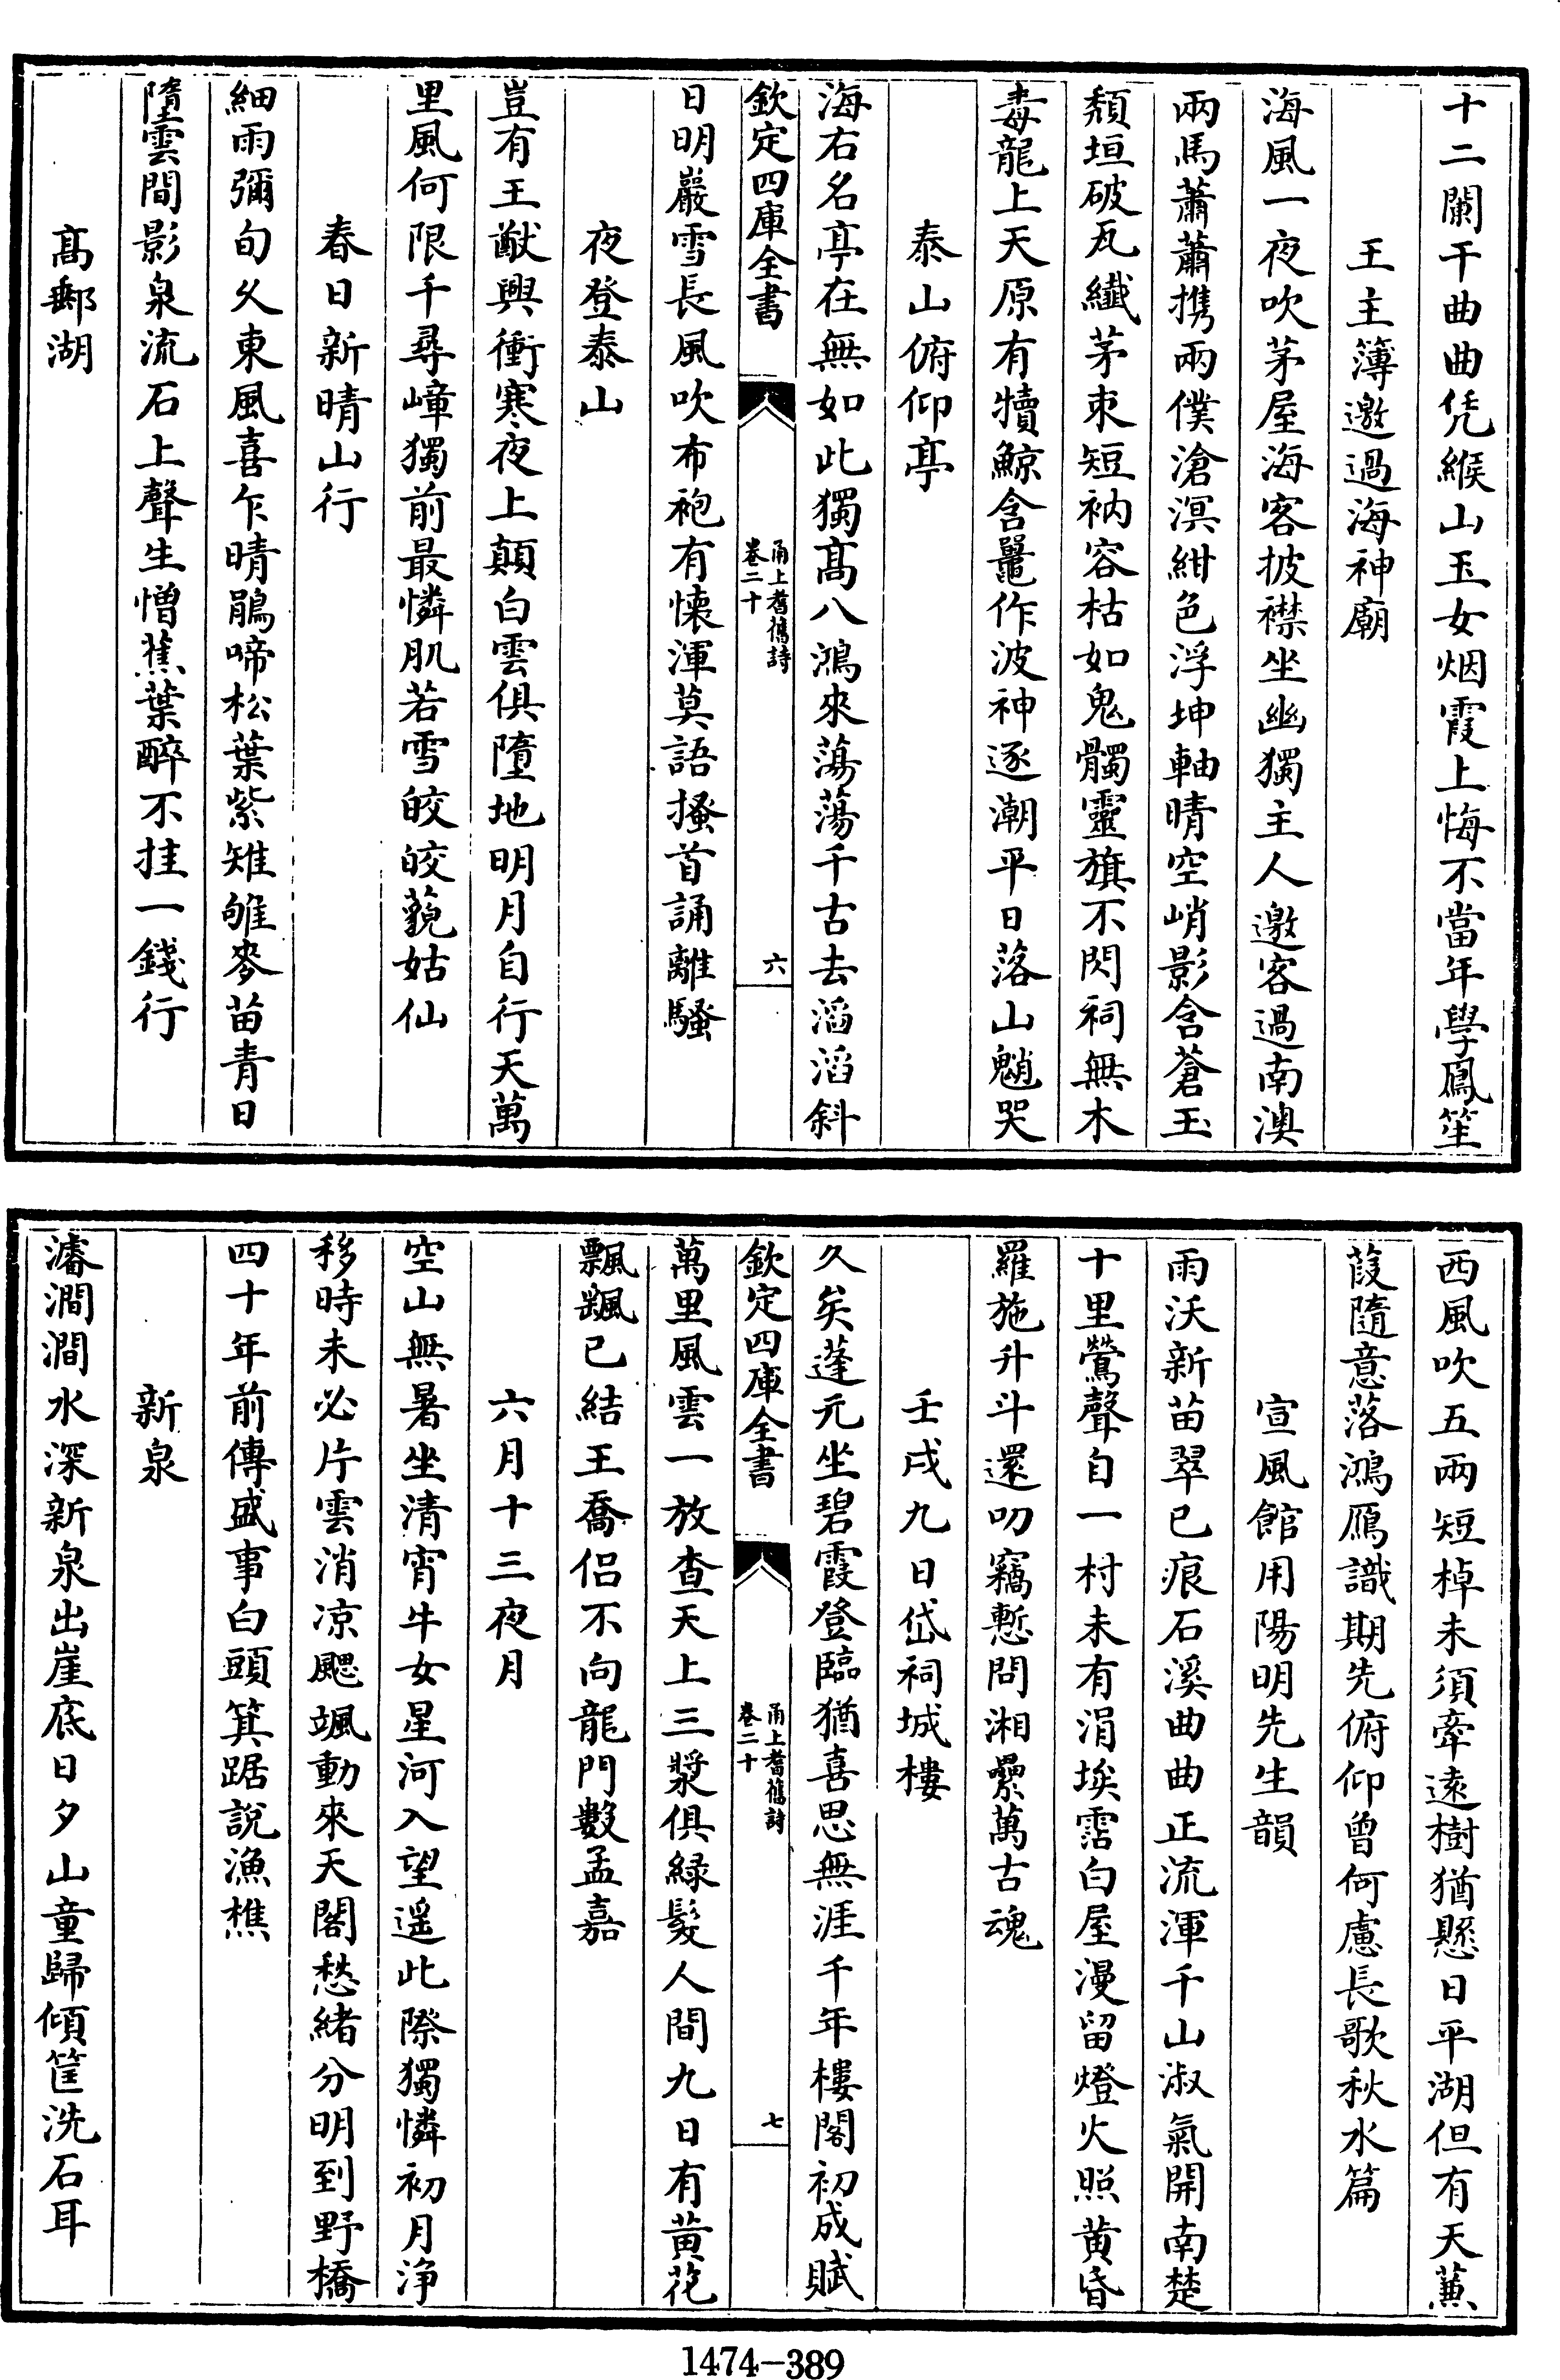 十二闌干曲曲凭緱山玉女烟霞上悔不當年學鳳笙
王主簿邀過海神廟
海風一夜吹茅屋海客披襟坐幽獨主人邀客過南澳
兩馬蕭蕭携兩僕滄溟紺色浮坤軸晴空峭影含蒼玉
頹垣破瓦纎茅朿短衲容枯如鬼髑靈旗不閃祠無木
毒龍上天原有犢鯨含鼉作波神逐潮平日落山魈哭
泰山俯仰亭
海右名亭在無如此獨髙八鴻來蕩蕩千古去滔滔斜
欽定四庫全書
甬上耆舊詩
卷二十
六
日明巖雪長風吹布袍有懐渾莫語搔首誦離騷
夜登泰山
豈有王猷興衝寒夜上顛白雲俱墮地明月自行天萬
里風何限千尋嶂獨前最憐肌若雪皎皎藐姑仙
春日新晴山行
細雨彌旬乆東風喜乍晴鵑啼松葉紫雉雊麥苗青日
墮雲間影泉流石上聲生憎蕉葉醉不挂一錢行
髙郵湖
西風吹五兩短棹未須牽逺樹猶懸日平湖但有天蒹
葭隨意落鴻鴈識期先俯仰曽何慮長歌秋水篇
宣風館用陽明先生韻
雨沃新苗翠已痕石溪曲曲正流渾千山淑氣開南楚
十里鶯聲自一村未有涓埃霑白屋漫留燈火照黄昏
羅施升斗還叨竊慙問湘纍萬古魂
壬戌九日岱祠城樓
久矣蓬元坐碧霞登臨猶喜思無涯千年樓閣初成賦
欽定四庫全書
甬上耆舊詩
卷二十
七
萬里風雲一放查天上三漿俱緑髪人間九日有黄花
飄飄已結王喬侣不向龍門數孟嘉
六月十三夜月
空山無暑坐清宵牛女星河入望遥此際獨憐初月浄
移時未必片雲消凉颸颯動來天闊愁緒分明到野橋
四十年前傳盛事白頭箕踞說漁樵
新泉
濬澗澗水深新泉出崖底日夕山童歸傾筐洗石耳
1474-389